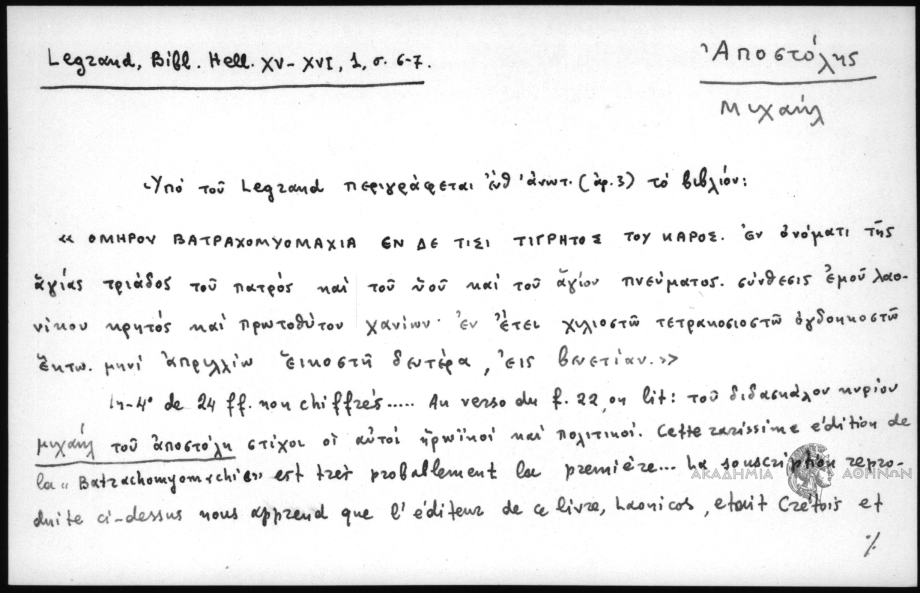 Legrand, Bibl. Hell. XV-XVI, 1, σ. 6-7.
Ἀποστόλης
Μιχαήλ
Ὑπό τοῦ Legrand περιγράφεται ἐνθ' ἀνωτ. (ἀρ. 3) τό βιβλίον:
« ΟΜΗΡΟΥ ΒΑΤΡΑΧΟΜΥΟΜΑΧΙΑ ΕΝ ΔΕ ΤΙΣΙ ΤΙΓΡΗΤΟΣ ΤΟΥ ΚΑΡΟΣ. Ἐν ὀνόματι τῆς
ἁγίας τριάδος τοῦ πατρός καί τοῦ ὑοῦ καί τοῦ ἁγίου πνεύματος. σύνθεσις ἐμοῦ λαο-
νίκου κρητός καί πρωτοθύτου χανίων· ἐν ἔτει χιλιοστῶ τετρακοσιοστῶ ὀγδοηκοστῶ
ἕκτω. μηνί ἀπριλλίω εἰκοστῆ δευτέρα, εἰς βενετίαν.»
In-4° de 24 ff. non chiffrés..... Au verso du f. 22, on lit: τοῦ διδασκάλου κυρίου
μιχαήλ τοῦ ἀποστόλη στίχοι οἱ αὐτοί ἡρωϊκοί καί πολιτικοί. Cette rarissime édition de
la «Batrachomyomachie» est très probablement la première... La souscription repro-
duite ci-dessus nous apprend que l'éditeur de ce livre, Laonicos, etait Crétois et
%
ΑΚΑΔΗΜΙΑ ΑΘΗΝΩΝ